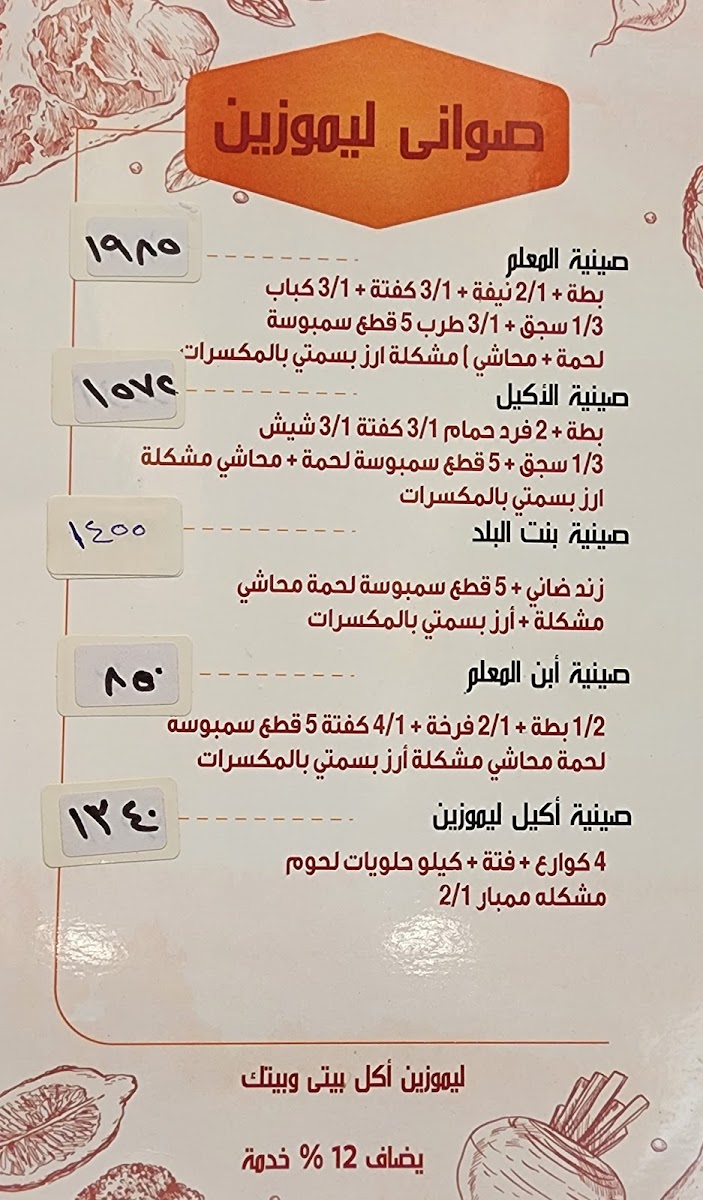 صوانى ليموزين
صينية المعلم ١٩٨٥
بطة + 2/1 نيفة + 3/1 كفتة + 3/1 كباب
1/3 سجق + 3/1 طرب 5 قطع سمبوسة
لحمة + محاشي ) مشكلة ارز بسمتي بالمكسرات
صينية الأكيل ١٥٧٥
بطة + 2 فرد حمام 3/1 كفتة 3/1 شيش
1/3 سجق + 5 قطع سمبوسة لحمة + محاشي مشكلة
ارز بسمتي بالمكسرات
صينية بنت البلد ١٤٠٠
زند ضاني + 5 قطع سمبوسة لحمة محاشي
مشكلة + أرز بسمتي بالمكسرات
صينية أبن المعلم ٨٥٠
1/2 بطة + 2/1 فرخة + 4/1 كفتة 5 قطع سمبوسه
لحمة محاشي مشكلة أرز بسمتي بالمكسرات
صينية أكيل ليموزين ١٣٤٠
4 كوارع + فتة + كيلو حلويات لحوم
مشكله ممبار 2/1
ليموزين أكل بيتى وبيتك
يضاف 12 % خدمة